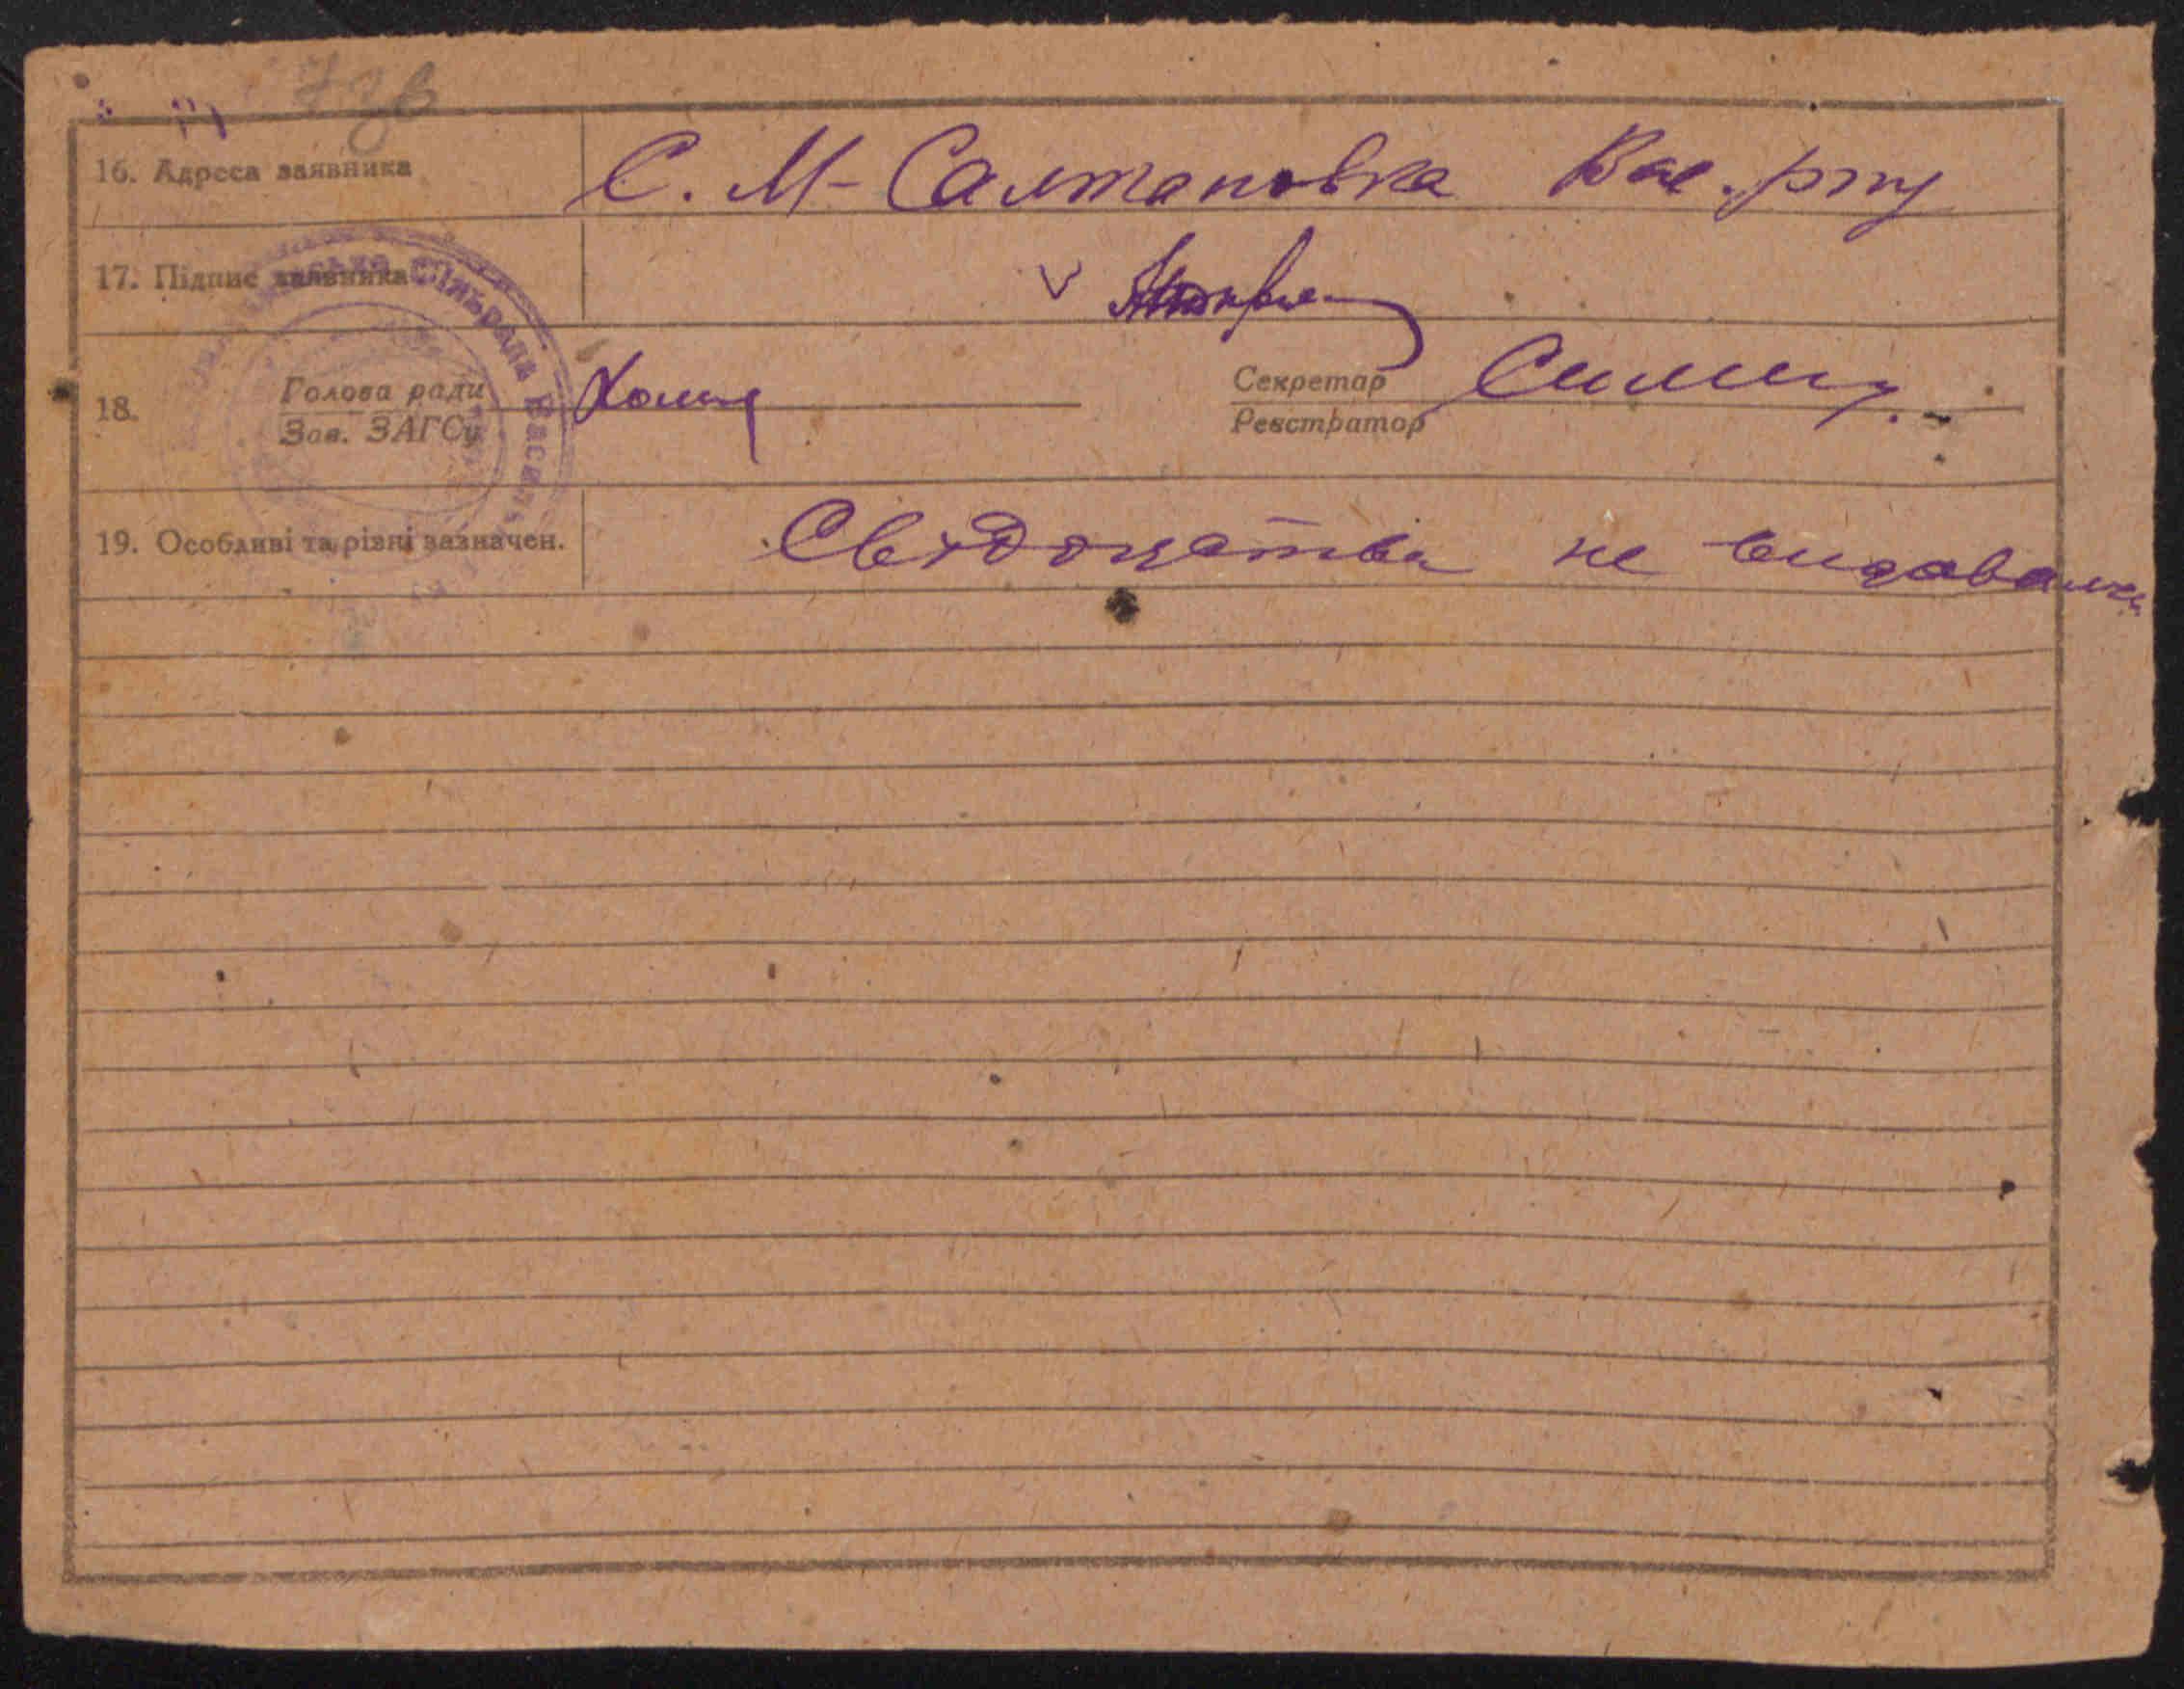 16. Адреса заявника С. М-Салтановка Вас. р-ну
17. Підпис заявника
18. Голова ради
Зав. ЗАГСу
Секретар
Реєстратор
19. Особливі та різні зазначен. Свідоцтва не видавалося
сільрада Васильк